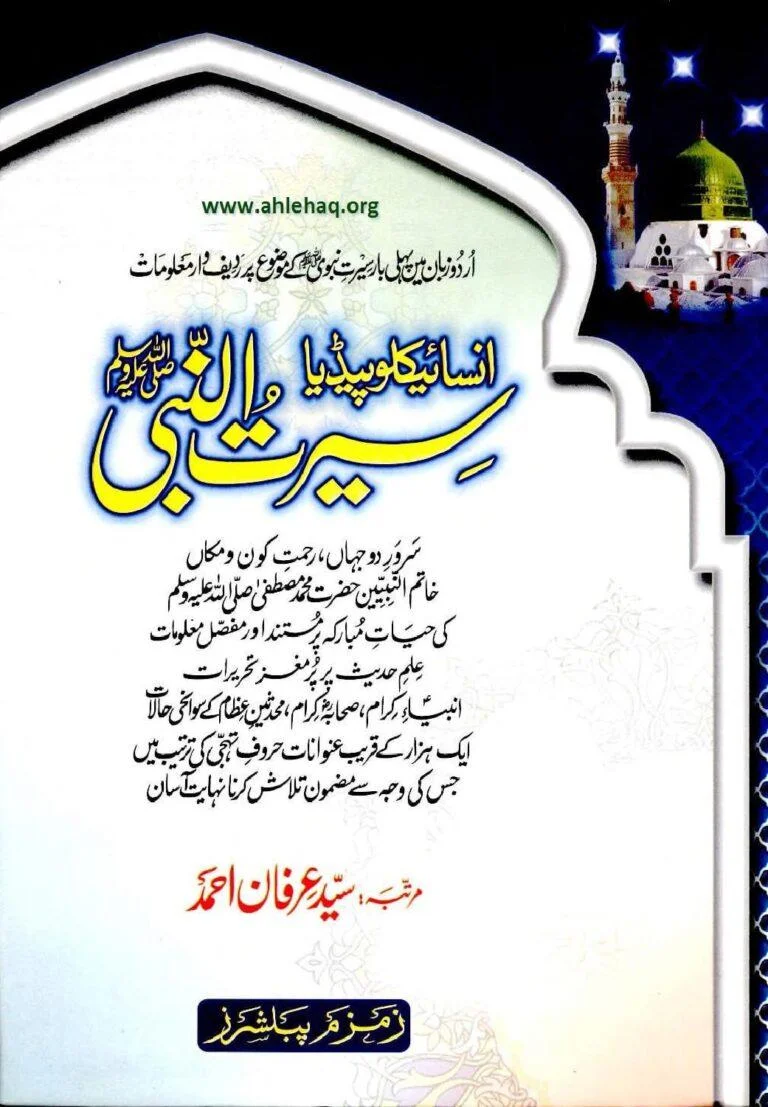 www.ahlehaq.org
اُردو زبان میں پہلی بار سیرتِ نبوی ﷺ کے موضوع پر ردیف وار معلومات
انسائیکلوپیڈیا
سِیرتُ النّبی صلی اللہ علیہ وسلم
سَرورِ دو جہاں، رحمتِ کون و مکاں
خاتم النّبیّین حضرت محمد مصطفیٰ صلی اللہ علیہ وسلم
کی حیاتِ مُبارکہ پر مُستند اور مفصّل معلومات
عِلمِ حدیث پر پُرمغز تحریرات
انبیاءِ کِرام، صحابہ کِرام، محدثینِ عِظام کے سوانحی حالات
ایک ہزار کے قریب عنوانات حروفِ تہجّی کی ترتیب میں
جس کی وجہ سے مضمون تلاش کرنا نہایت آسان
مرتّبہ: سیّد عِرفان احمد
زمزم پبلشرز